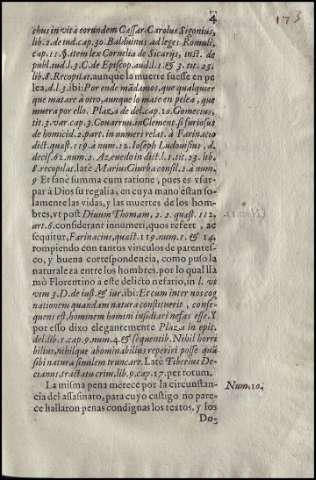 4
173
ibus in vita eorundem Cæssar Carolus Sigonius,
lib. 2. de iud. cap. 30. Balduinus ad leges Romuli,
cap. 11. §. item lex Cornelia de Sicarijs, inst. de
publ. iud. l. 3. C. de Episcop. aud. l. 1. & 3. tit. 23.
lib. 8. Recopilat. aunque la muerte fuesse en pe
lea, d. l. 3. ibi: Por ende mādamos, que qualquier
que matare à otro, aunque lo mate en pelea, que
muera por ello. Plaza de del. cap. 10. Gomecius,
tit. 3. var. cap. 3. Couarruu. in Clement. si furiosus
de homicid. 2. part. in numeri relat. à Farinacio
dict. quæst. 119. à num. 12. Ioseph Ludouisius, d.
decis. 62. num. 2. Azeuedo in dict. l. 1. tit. 23. lib.
8. recopilat. late Marius Giurba consil. 2. à num.
9 Et sane summa cum ratione, pues es vsur-
par à Dios su regalia, en cuya mano estan so-
lamente las vidas, y las muertes de los hom-
bres, vt post Diuum Thomam, 2. 2. quæst. 112.
art. 6. considerant innumeri, quos refert, ac
sequitur, Farinacius, quæst. 119. num. 1. & 14,
rompiendo con tantos vinculos de parentes-
co, y buena correspondencia, como puso la
naturaleza entre los hombres, por lo qual lla
mò Florentino à este delicto nefario, in l. vt
vim 3. D. de iust. & iur. ibi: Et cum inter nos cog
nationem quandam natura constituerit, conse-
quens est, hominem homini insidiari nefas esse. Y
por esso dixo elegantemente Plaza in epit.
del. lib. 1. cap. 9. num. 4. & sequentib. Nihil horri
bilius, nihilque abominabilius reperiri posse quā
sibi natura similem trucidare. Late Tiberius De-
cianus tractatu crim. lib. 9. cap. 17. per totum.
La misma pena merece por la circunstan-
Num. 10.
cia del assasinato, para cuyo castigo no pare-
ce hallaron penas condignas los textos, y los
Do-